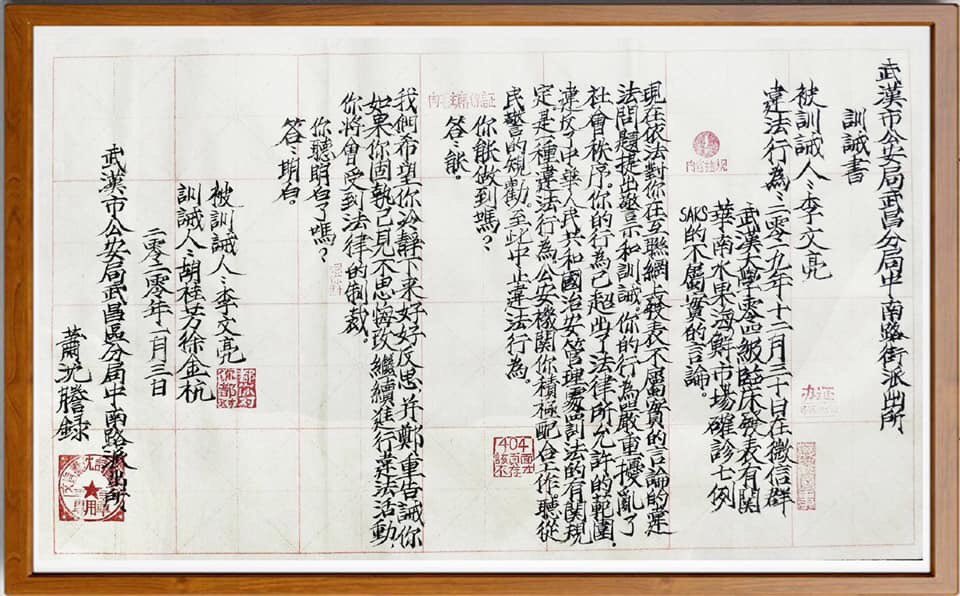 武漢市公安局武昌分局中南路街派出所
訓誡書
被訓誡人:李文亮
違法行為:二零一九年十二月三十日在微信群
武漢大學零四級臨床發表有關
華南水果海鮮市場確診七例
SAKS的不屬實的言論。
現在依法對你在互聯網上發表不屬實的言論的違
法問題提出警示和訓誡。你的行為嚴重擾亂了
社會秩序。你的行為已超出了法律所允許的範圍.
違反了中華人民共和國治安管理處罰法的有關規
定.是一種違法行為.公安機關你積極配合工作.聽從
民警的規勸。至此中止違法行為。
你能做到嗎?
答:能。
我們希望你冷靜下來好好反思.并鄭重告誡你
如果你固執己見不思悔改繼續進行違法活動.
你將會受到法律的制裁。
你聽明白了嗎?
答:明白。
被訓誡人:李文亮
訓誡人:胡桂芳徐金杭
二零二零年一月三日
武漢市公安局武昌區分局中南路派出所.
謄錄